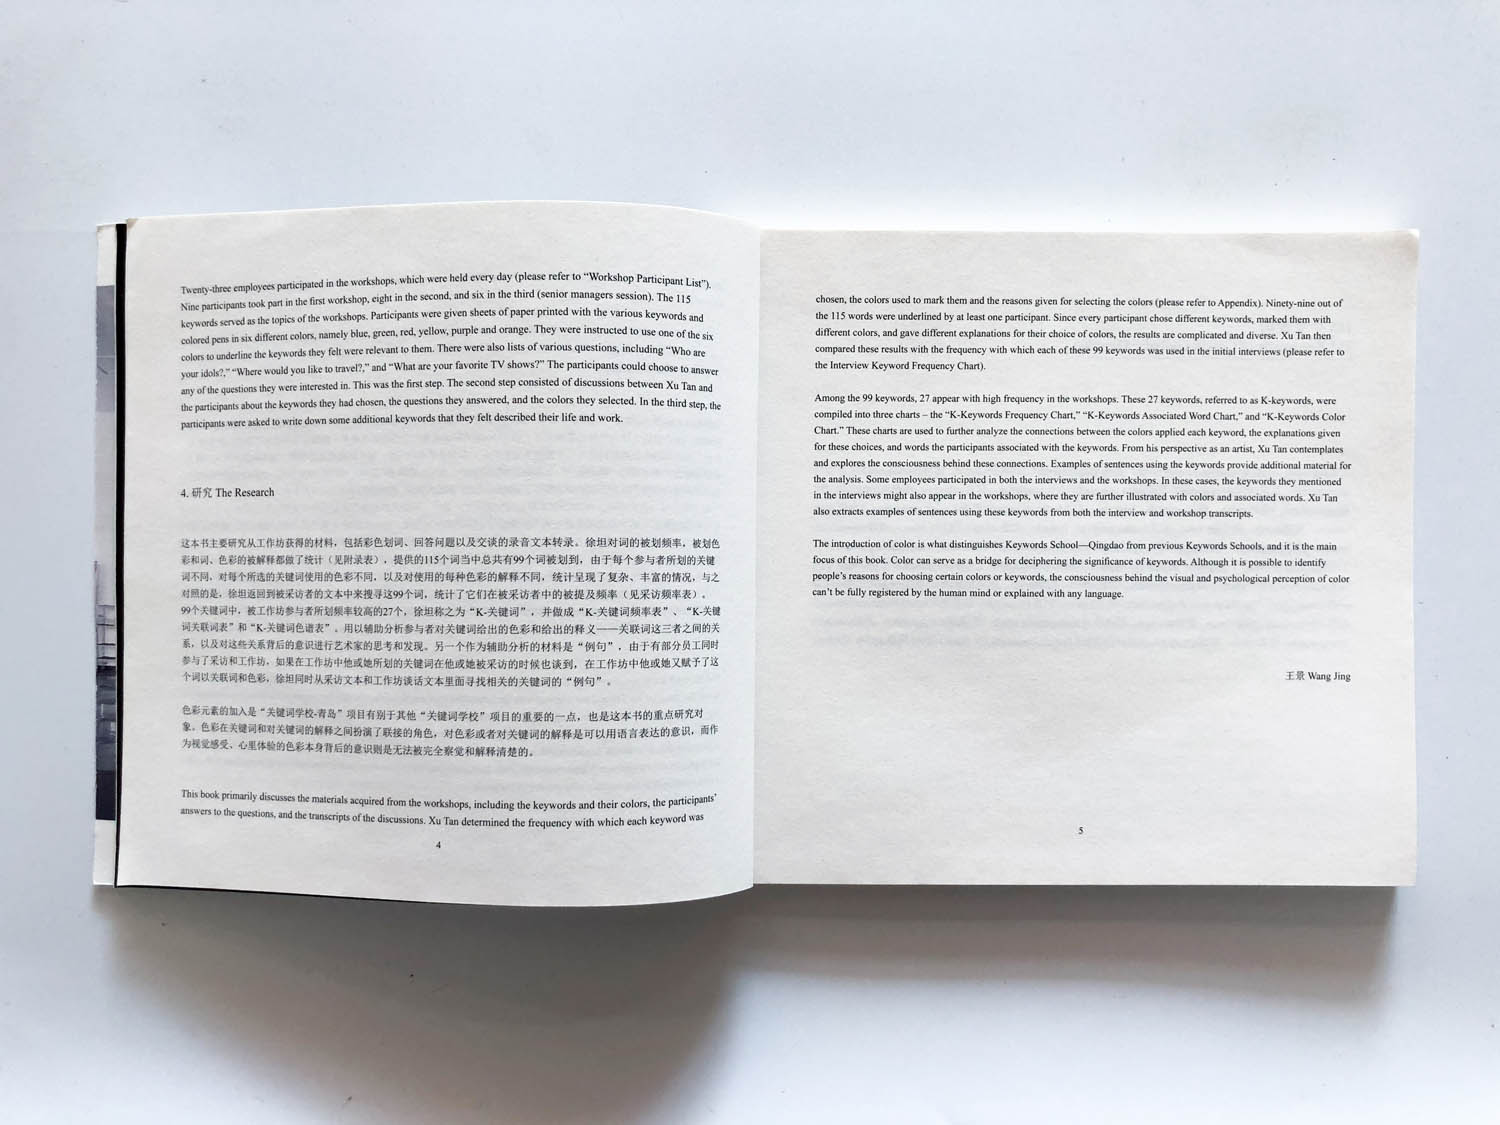 Twenty-three employees participated in the workshops, which were held every day (please refer to “Workshop Participant List”).
Nine participants took part in the first workshop, eight in the second, and six in the third (senior managers session). The 115
keywords served as the topics of the workshops. Participants were given sheets of paper printed with the various keywords and
colored pens in six different colors, namely blue, green, red, yellow, purple and orange. They were instructed to use one of the six
colors to underline the keywords they felt were relevant to them. There were also lists of various questions, including “Who are
your idols?,” “Where would you like to travel?,” and “What are your favorite TV shows?” The participants could choose to answer
any of the questions they were interested in. This was the first step. The second step consisted of discussions between Xu Tan and
the participants about the keywords they had chosen, the questions they answered, and the colors they selected. In the third step, the
participants were asked to write down some additional keywords that they felt described their life and work.
4. 研究 The Research
这本书主要研究从工作坊获得的材料，包括彩色划词、回答问题以及交谈的录音文本转录。徐坦对词的被划频率，被划色
彩和词、色彩的被解释都做了统计（见附录表），提供的115个词当中总共有99个词被划到，由于每个参与者所划的关键
词不同，对每个所选的关键词使用的色彩不同，以及对使用的每种色彩的解释不同，统计呈现了复杂、丰富的情况，与之
对照的是，徐坦返回到被采访者的文本中来搜寻这99个词，统计了它们在被采访者中的被提及频率（见采访频率表）。
99个关键词中，被工作坊参与者所划频率较高的27个，徐坦称之为“K-关键词”，并做成“K-关键词频率表”、“K-关键
词关联词表”和“K-关键词色谱表”。用以辅助分析参与者对关键词给出的色彩和给出的释义——关联词这三者之间的关
系，以及对这些关系背后的意识进行艺术家的思考和发现。另一个作为辅助分析的材料是“例句”，由于有部分员工同时
参与了采访和工作坊，如果在工作坊中他或她所划的关键词在他或她被采访的时候也谈到，在工作坊中他或她又赋予了这
个词以关联词和色彩，徐坦同时从采访文本和工作坊谈话文本里面寻找相关的关键词的“例句”。
色彩元素的加入是“关键词学校-青岛”项目有别于其他“关键词学校”项目的重要的一点，也是这本书的重点研究对
象。色彩在关键词和对关键词的解释之间扮演了联接的角色，对色彩或者对关键词的解释是可以用语言表达的意识，而作
为视觉感受、心里体验的色彩本身背后的意识则是无法被完全察觉和解释清楚的。
This book primarily discusses the materials acquired from the workshops, including the keywords and their colors, the participants’
answers to the questions, and the transcripts of the discussions. Xu Tan determined the frequency with which each keyword was
4
chosen, the colors used to mark them and the reasons given for selecting the colors (please refer to Appendix). Ninety-nine out of
the 115 words were underlined by at least one participant. Since every participant chose different keywords, marked them with
different colors, and gave different explanations for their choice of colors, the results are complicated and diverse. Xu Tan then
compared these results with the frequency with which each of these 99 keywords was used in the initial interviews (please refer to
the Interview Keyword Frequency Chart).
Among the 99 keywords, 27 appear with high frequency in the workshops. These 27 keywords, referred to as K-keywords, were
compiled into three charts – the “K-Keywords Frequency Chart,” “K-Keywords Associated Word Chart,” and “K-Keywords Color
Chart.” These charts are used to further analyze the connections between the colors applied each keyword, the explanations given
for these choices, and words the participants associated with the keywords. From his perspective as an artist, Xu Tan contemplates
and explores the consciousness behind these connections. Examples of sentences using the keywords provide additional material for
the analysis. Some employees participated in both the interviews and the workshops. In these cases, the keywords they mentioned
in the interviews might also appear in the workshops, where they are further illustrated with colors and associated words. Xu Tan
also extracts examples of sentences using these keywords from both the interview and workshop transcripts.
The introduction of color is what distinguishes Keywords School—Qingdao from previous Keywords Schools, and it is the main
focus of this book. Color can serve as a bridge for deciphering the significance of keywords. Although it is possible to identify
people’s reasons for choosing certain colors or keywords, the consciousness behind the visual and psychological perception of color
can’t be fully registered by the human mind or explained with any language.
王景 Wang Jing
5